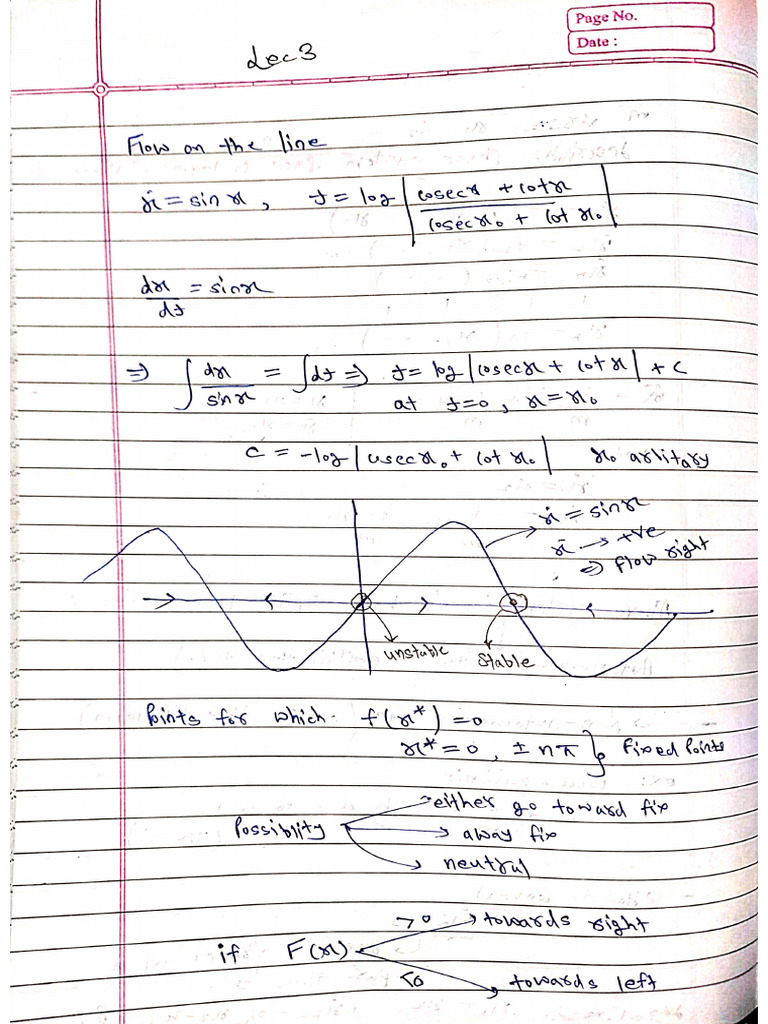 Page No.
Date :
Lec 3
Flow on the line
ẋ = sin x , t = log | cosec x + cot x / cosec x₀ + cot x₀ |
dx/dt = sin x
⇒ ∫ dx/sin x = ∫ dt ⇒ t = log |cosec x + cot x| + c
at t=0 , x = x₀
c = -log |cosec x₀ + cot x₀| x₀ arlitary
ẋ = sin x
ẋ → +ve
⇒ flow right
unstable
stable
Points for which f(x*) = 0
x* = 0 , ± nπ } fixed points
either go toward fix
Possiblity
away fix
neutral
>0 towards right
if F(x)
<0 towards left